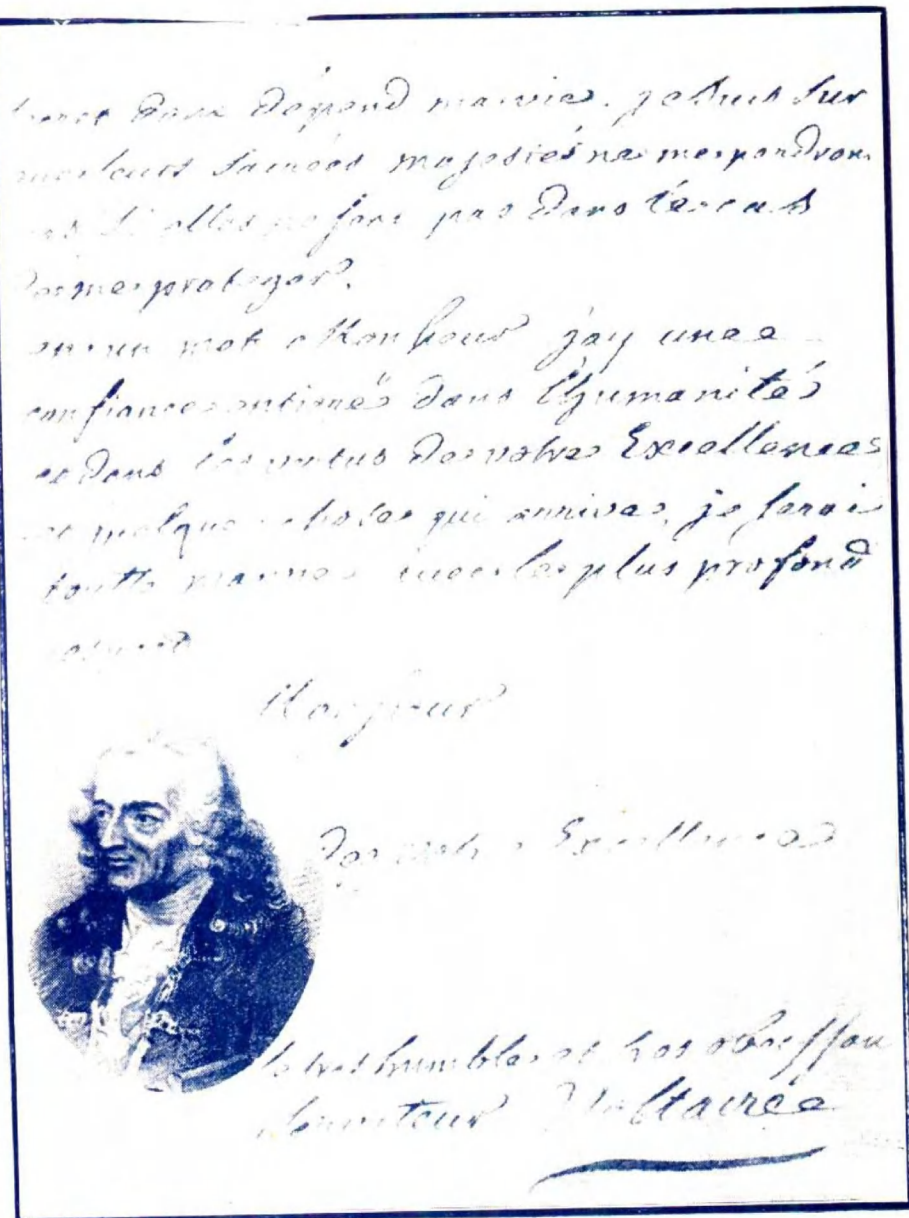 dont dépend ma vie. je suis sur
que leurs sacrées majestés ne me perdron
pas si elles ne sont pas dans le cas
de me proteger.
en un mot Monsieur j'ay une
confiance entiere dans l'humanité
et dans les vertus de votre Excellence
et quelque chose qui arrive, je serai
toutte ma vie avec le plus profond
respect
Monsieur
de votre Excellence
le tres humble et tres obeissan
serviteur Voltaire